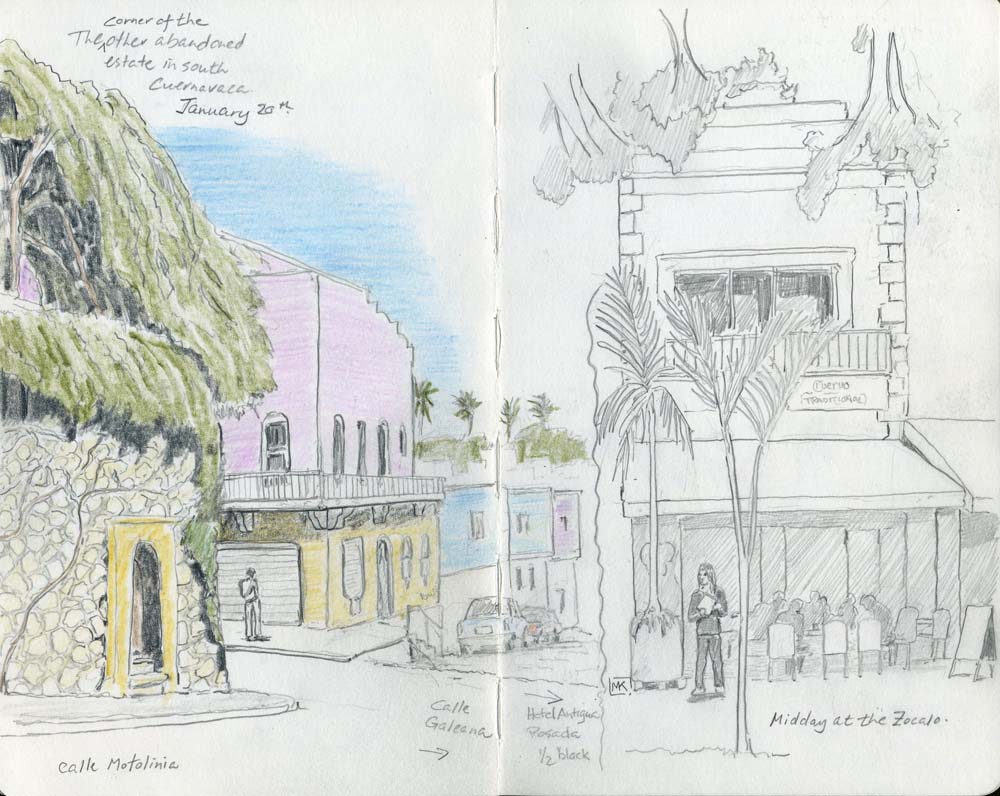 corner of the
The ^ other abandoned
estate in south
Cuernavaca
January 20th.
Calle Motolinia
Calle
Galeana
Hotel Antigua
Posada
1/2 block
Fuerno
TRADITIONAL
MK
Midday at the Zocalo.